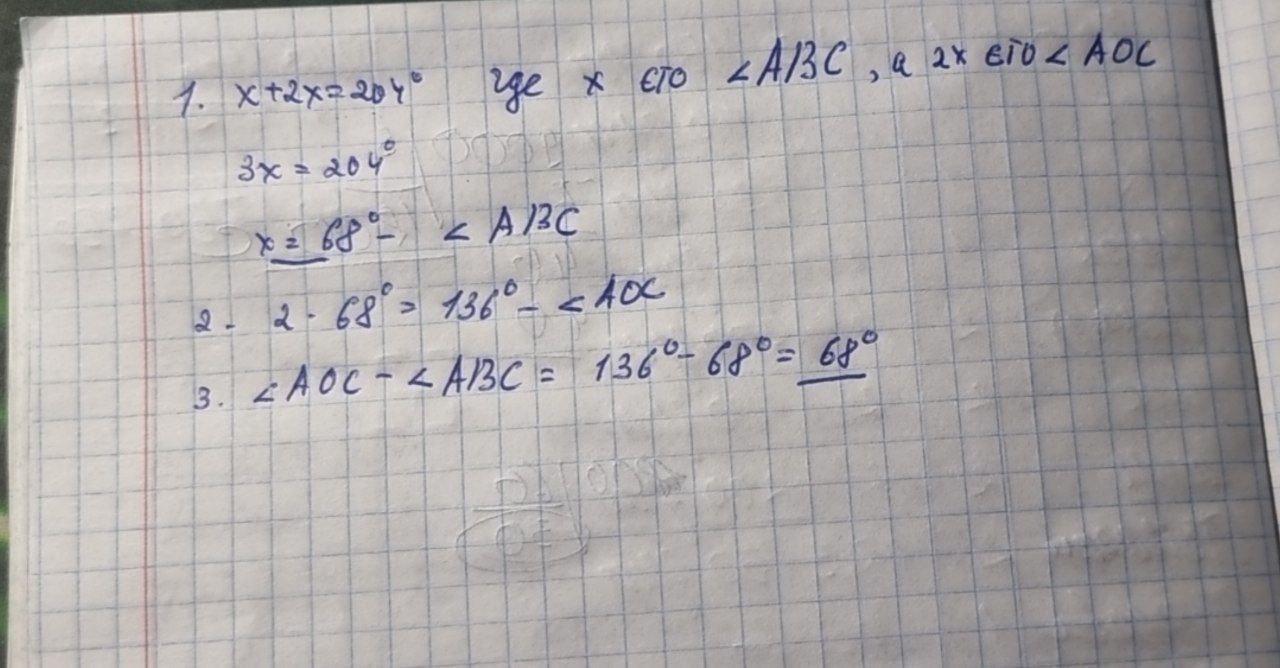 1. x+2x=204° где x єто <ABC, а 2x єто < AOC
3x = 204°
x = 68° - < ABC
2. 2 · 68° = 136° - < AOC
3. < AOC - < ABC = 136° - 68° = 68°